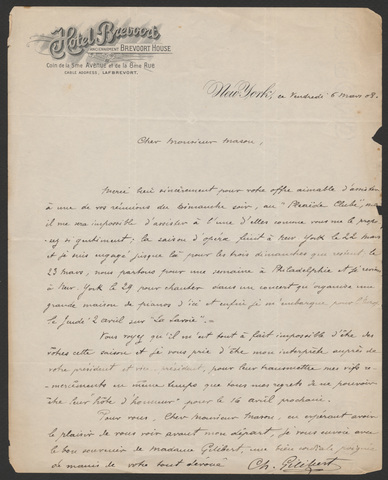 Hotel Brevort
ANCIENNEMENT BREVOORT HOUSE
Coin de la 5me Avenue et de la 8me Rue
CABLE ADDRESS, LAFBREVORT.
New York, ce Vendredi 6 mars 08.
Cher Monsieur Mason,
Merci bien sincèrement pour votre offre aimable d'assister
à une de vos réunions du Dimanche soir, au "Pleiades Club", mais
il me sera impossible d'assister à l'une d'elles comme vous me le propo-
sez si gentiment; la saison d'opéra finit à New York le 22 Mars
et je suis engagé jusque là pour les trois dimanches qui restent le
23 mars, nous partons pour une semaine à Philadelphie et je reviens
à New York le 29 pour chanter dans un concert qu'organise une
grande maison de pianos d'ici et enfin je m'embarque pour l'Europe
le Jeudi 2 avril sur "La Savoie".-
Vous voyez qu'il m'est tout à fait impossible d'être des
vôtres cette saison et je vous prie d'être mon interprète auprès de
votre président et vice-président, pour leur transmettre mes vifs re-
merciements en même temps que tous mes regrets de ne pouvoir
être leur "hôte d'honneur" pour le 16 avril prochain.
Pour vous, Cher Monsieur Mason, en espérant avoir
le plaisir de vous voir avant mon départ, je vous envoie avec
le bon souvenir de madame Gilibert, une bien cordiale poignée
de mains de votre tout dévoué Ch. Gilibert